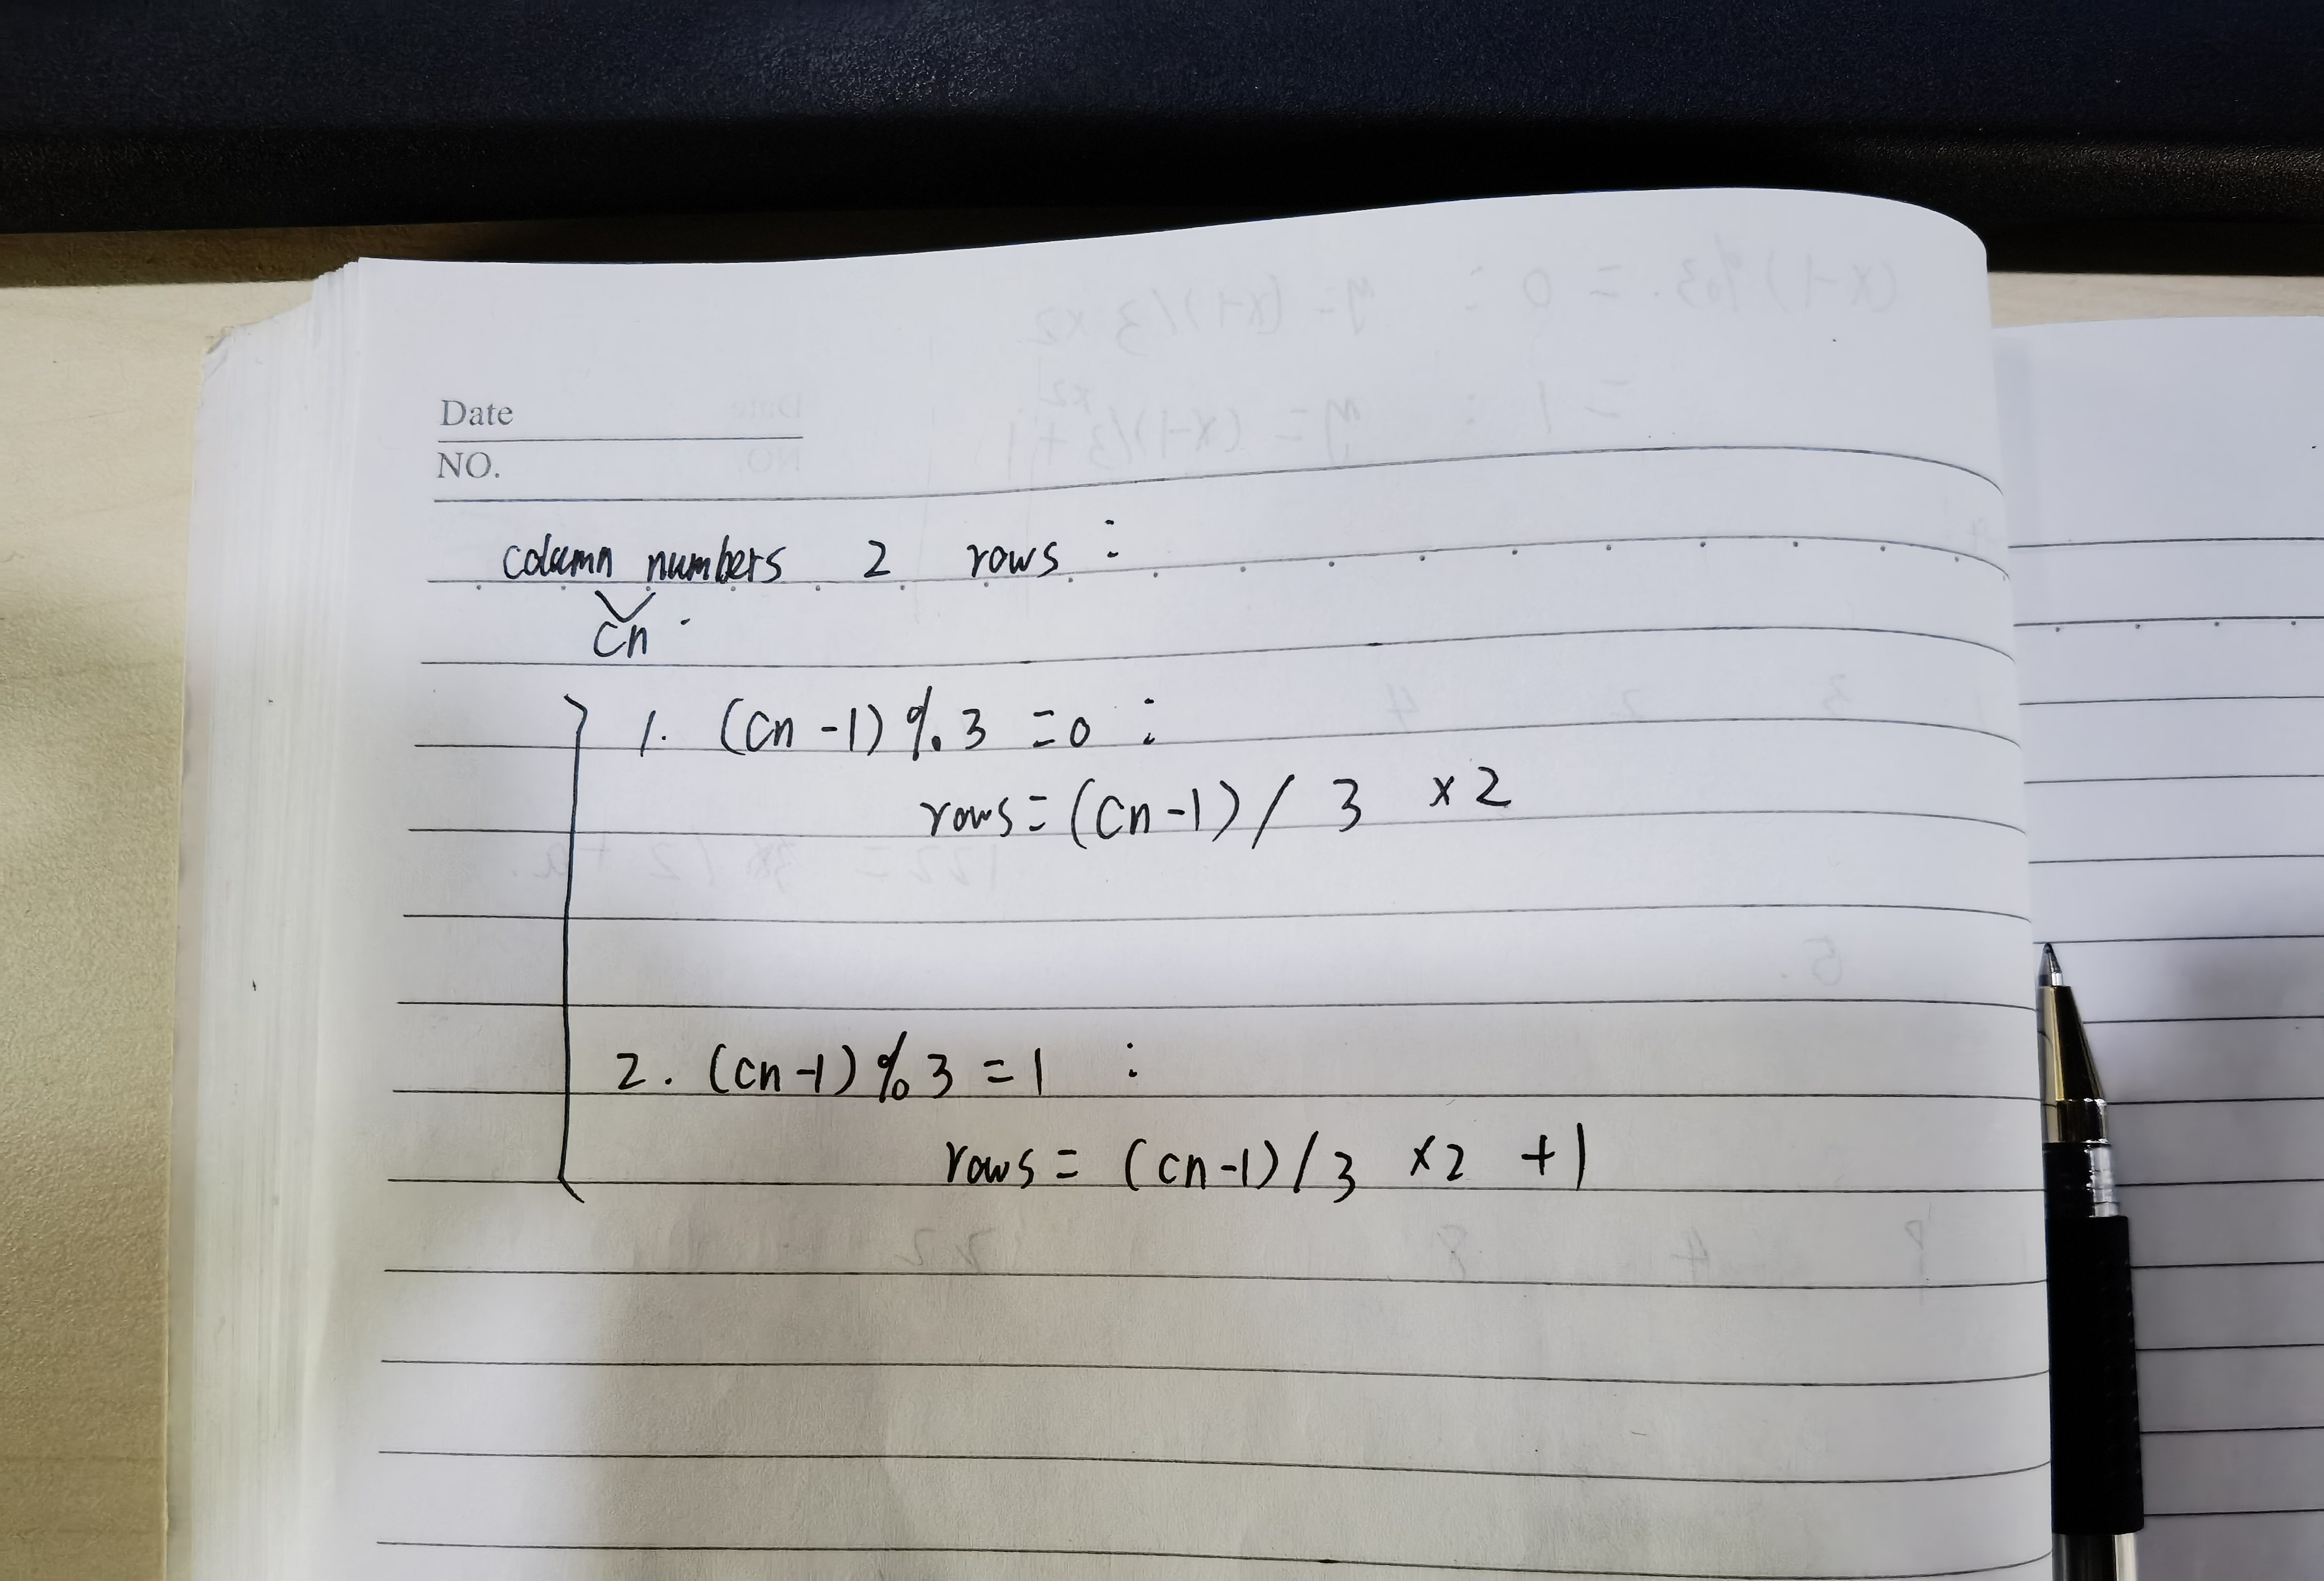 Date
NO.
column numbers 2 rows :
Cn
1. (Cn -1) % 3 = 0 :
rows = (Cn -1) / 3 × 2
2. (cn -1) % 3 = 1 :
rows = (cn -1) / 3 × 2 + 1